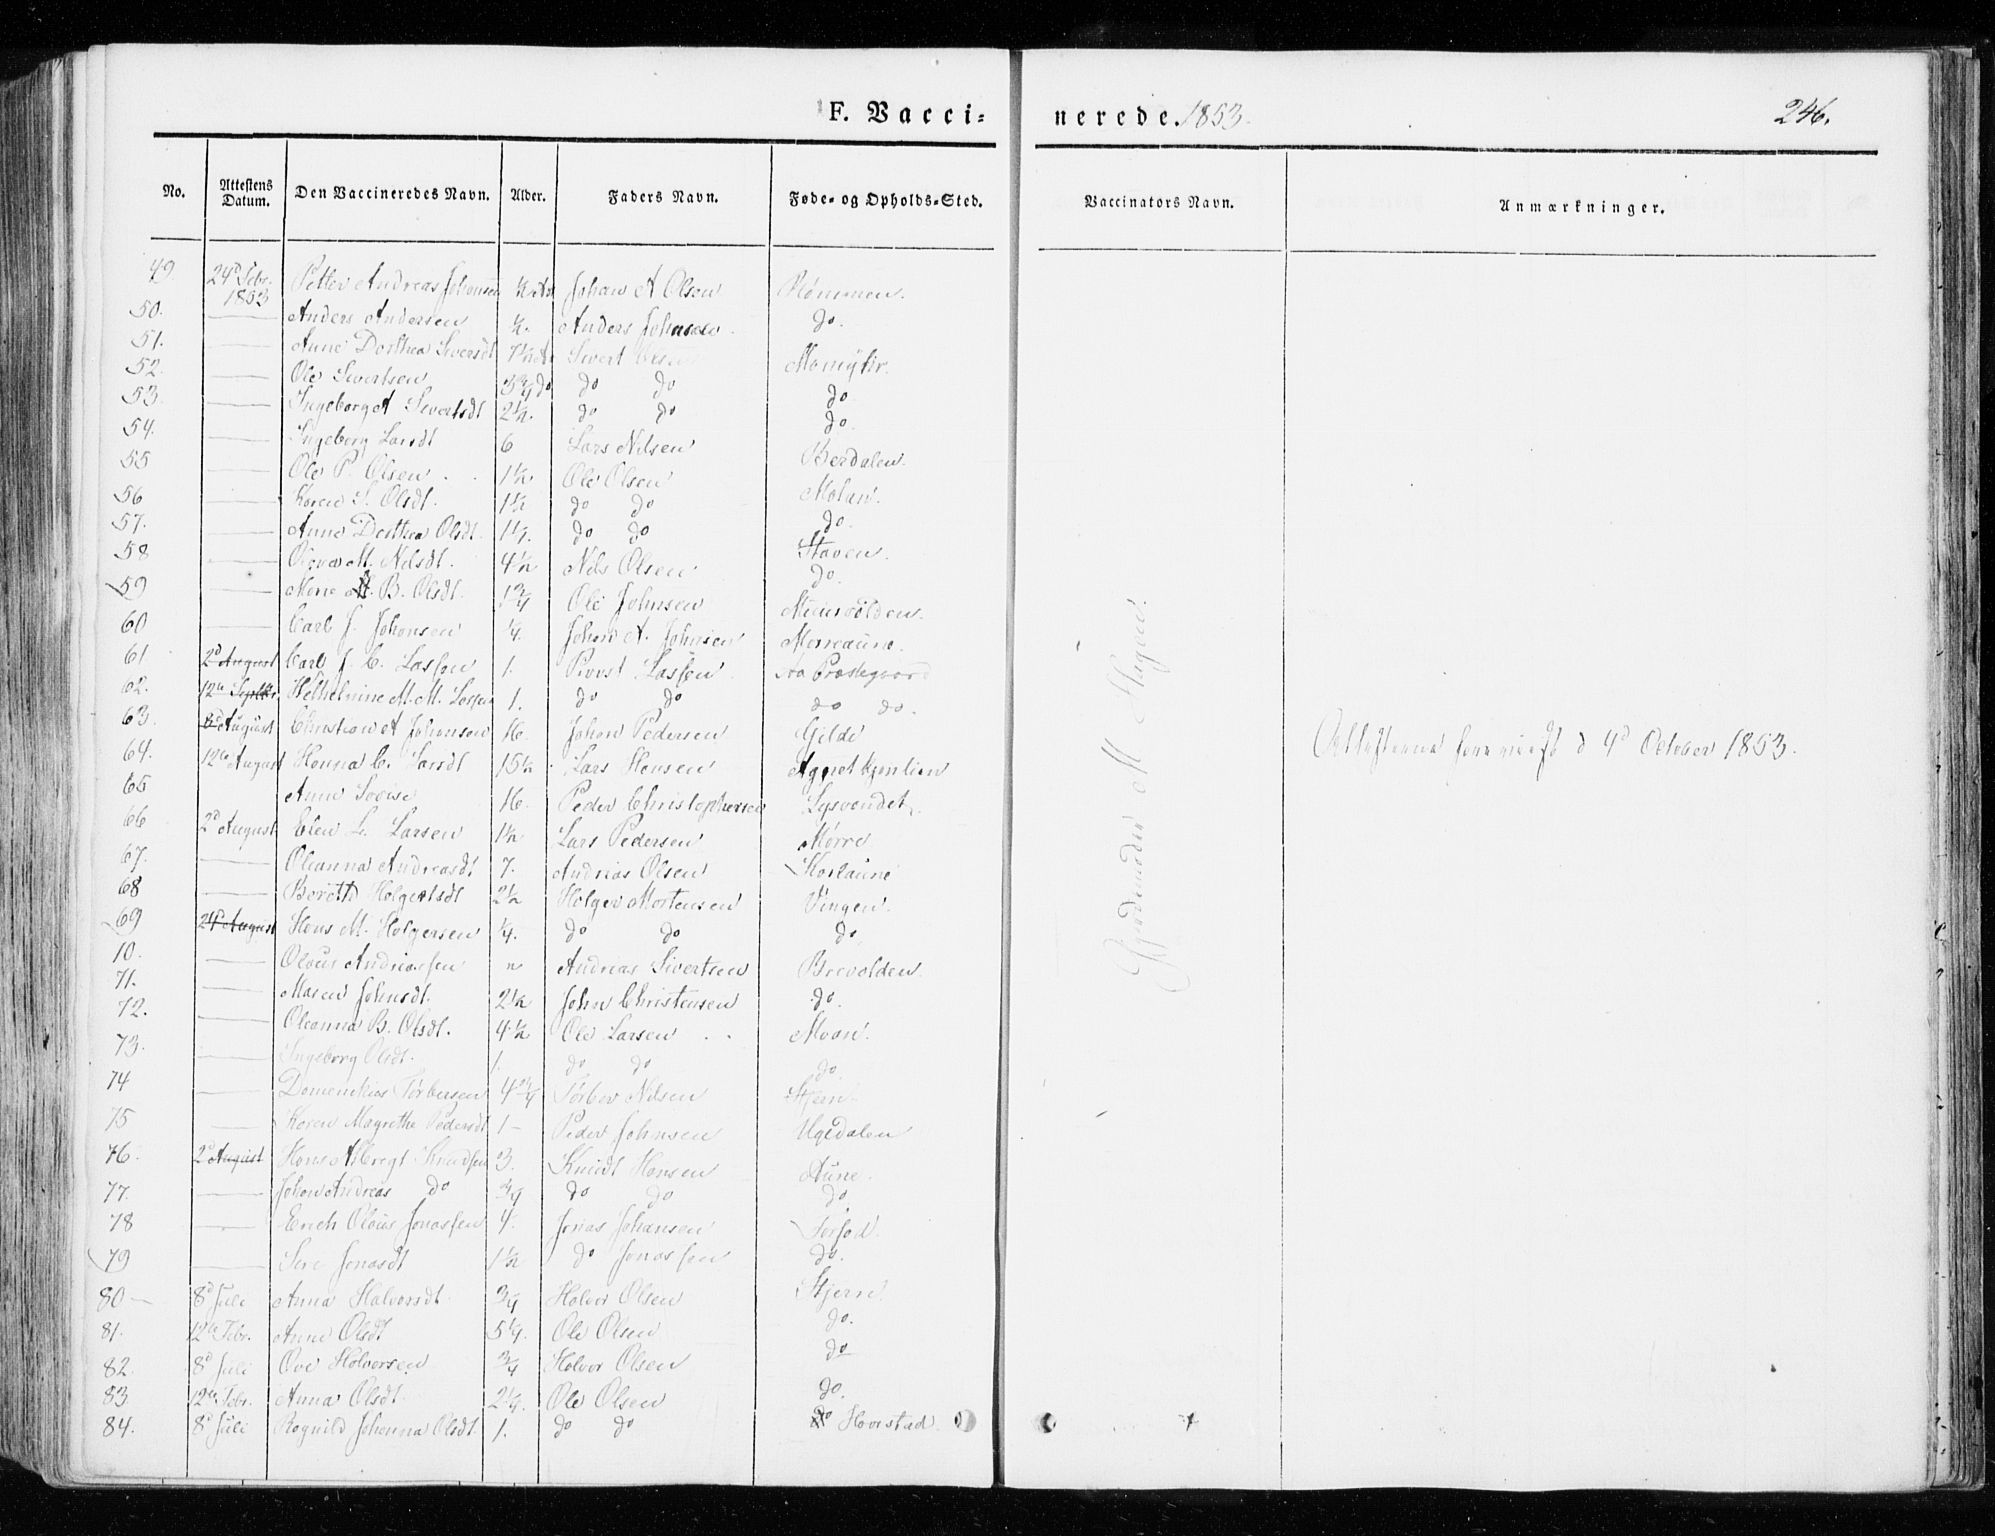 F. Vaccinerede. 1853. 246.
No. Attestens Datum. Den Vaccineredes Navn. Alder. Faders Navn. Føde- og Opholds-Sted. Vaccinators Navn. Anmærkninger.
49. 24d Febr. 1853 Petter Andreas Johansen Johan A Olsen
50. — Anders Andersen Anders Johnsen do.
51. — Anne Dorthea Siversdt Sivert Olsen
52. — Ole Sivertsen 3 3/4 do do do do
53. — Ingeborg A Sivertsdt 2 1/2. do do do
54. — Ingeborg Larsdt 6 Lars Nilsen Berdalen.
55 — Ole P. Olsen 1 1/2 Ole Olsen Molan.
56 — Karen S. Olsdt. 1 1/2 do do do.
57. — Anne Dorthea Olsdt. do do Staven.
58 — M. Nilsdt. 4 1/2 Nils Olsen do.
59 — B. Olsdt. 1 3/4 Ole Johnsen
60 — Carl J. Johansen 1/4. Johan A. Johnsen Morreaune.
61. 2d August Carl J. C. Lassen 1. Provst Lassen Aa Præstegaard
62. 12te Septbr. Wilhelmine M. M. Lassen 1. do do do do.
63. August Christian A Johansen 16. Johan Pedersen Gjelde
64. 12te August Hanna C. Larsdt 15 1/2 Lars Hansen
65 Anne Lovise 16. Peder Christophersen Lysvandet.
66 2d August Elen L. Larsen 1 1/2 Lars Pedersen Mørre
67. — Oleanna Andreasdt 7. Andreas Olsen
68 — Bereth Holgertsdt 2 1/2 Holger Mortensen Vingen.
69 24d August Hans M. Holgersen 1/4. do do do
10. — Olaus Andreassen " Andreas Sivertsen Brevolden.
71. — Maren Johnsdt. 2 1/2 John Christensen do.
72. — Oleanna B. Olsdt. 4 1/2 Ole Larsen Moan.
73. — Ingeborg Olsdt. 1. do do do.
74 — Domenikus Tørbersen 4 3/4 Tørber Nilsen Stjern.
75 — Karen Magrethe Pedersdt 1 — Peder Johnsen Ugedalen
76. 2d August Hans Albregt Knudsen 3. Knudt Hansen Aune.
77. — Johan Andreas do 3/4 do do do
78 — Erich Olaus Jonassen 4. Jonas Johansen
79 — Seri Jonasdt 1 1/2 do Jonassen do.
80 — 8d Juli Anna Halvorsdt 3/4 Halvor Olsen Stjern
81. 12te Febr. Anne Olsdt 5 1/4. Ole Olsen do.
82. 8d Juli Ove Halvorsen 3/4 Halvor Olsen do
83. 12te Febr. Anna Olsdt. 2 1/4. Ole Olsen do.
84. 8d Juli Ragnild Johanna Olsdt. 1. do do Hovstad.
Attesterne d 4d October 1853.